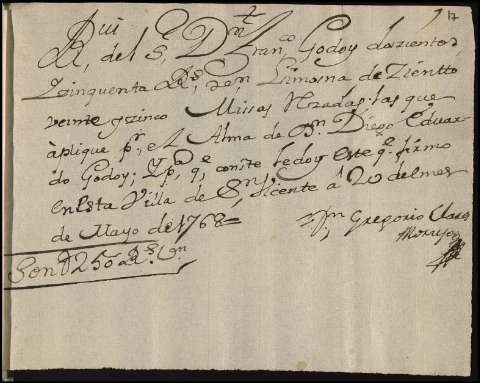 17
Rui, del Sr. Dn. Franco. Godoy dozientos,
Zinquenta Rs. von, Limosna de Zientto
veinte y zinco Missas Rezadas, las que
àplique pr. el Alma de Dn. Diego Eduar-
do Godoy; Y pa. qe. conste le doy este qe. firmo
en Esta Villa de Sn. Vicente à 20 del mes
de Mayo de 1768=
Fr. Gregorio
Son 250 Rs. Von